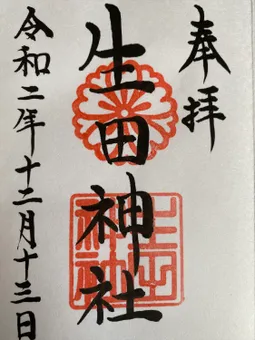 奉拝
生田神社
令和二年十二月十三日